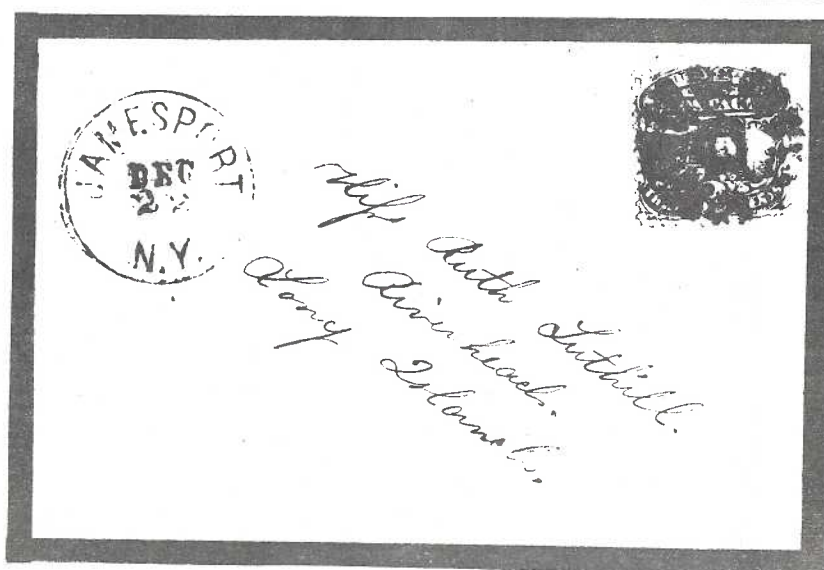 JAMESPORT
DEC
22
N.Y.
Miss Ruth Tuthill.
River head.
Long Island.